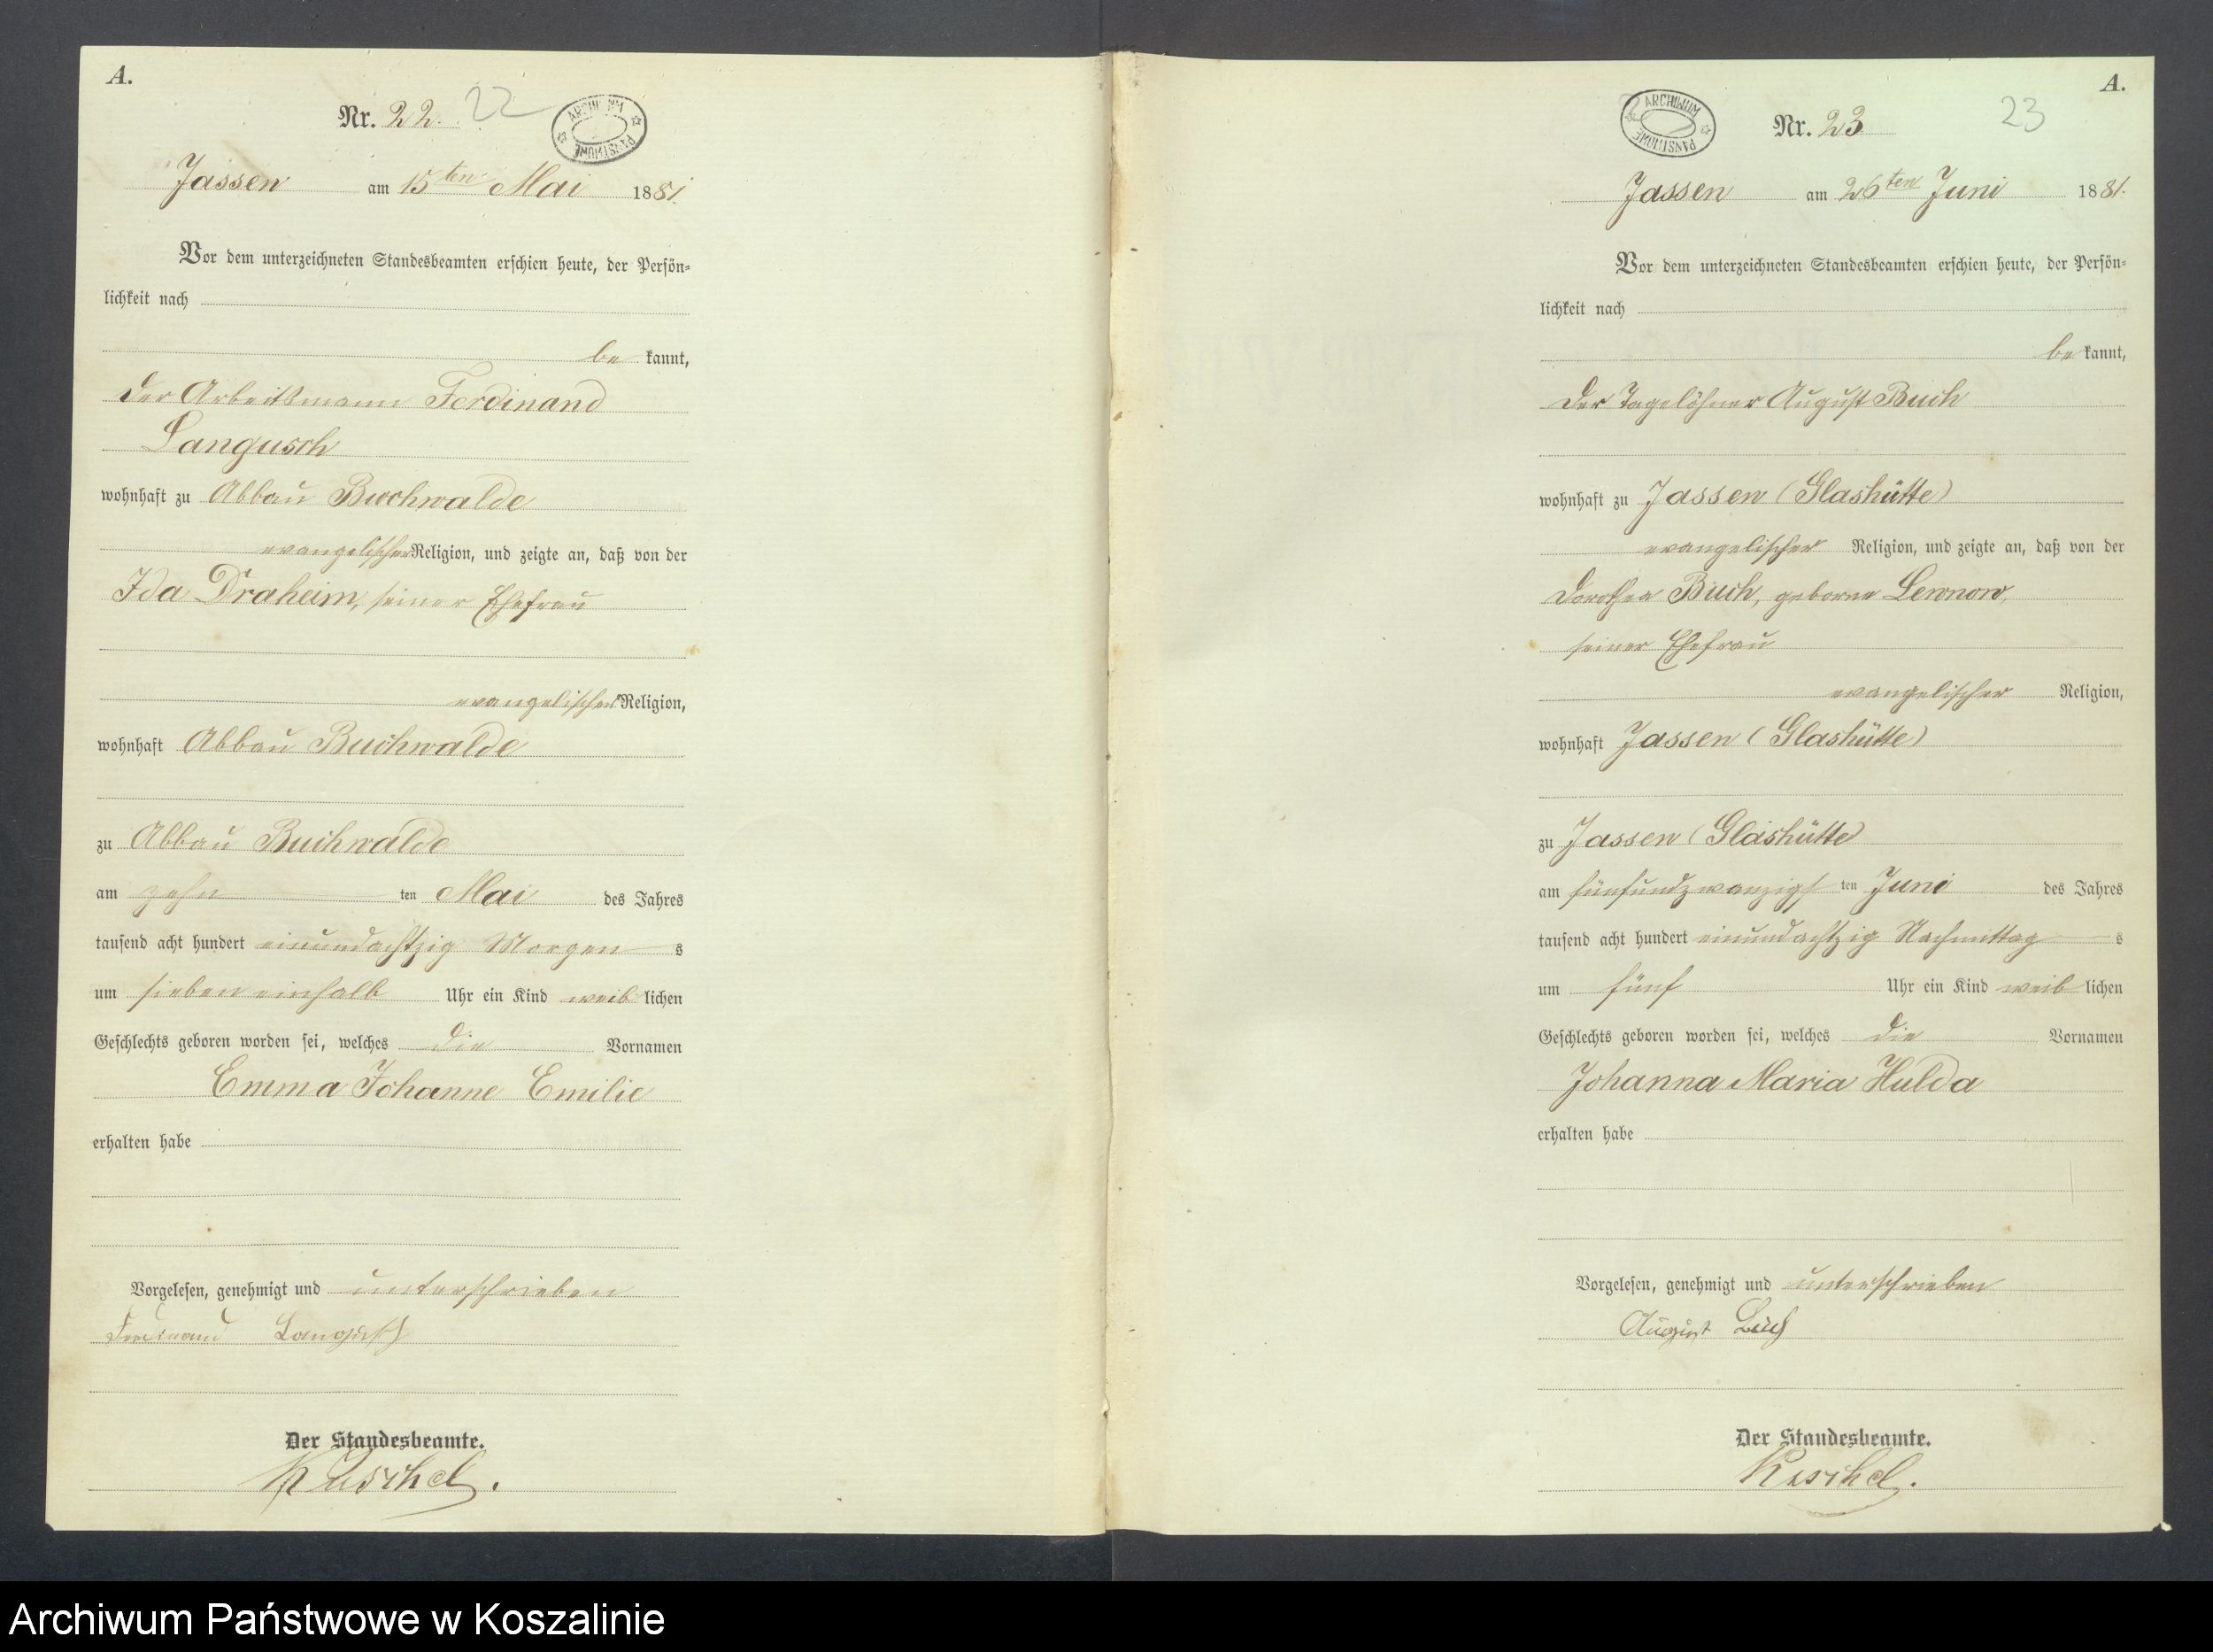 A.
Nr. 22. 22
ARCHIWUM PAŃSTWOWE
Jassen am 15ten Mai 1881.
Vor dem unterzeichneten Standesbeamten erschien heute, der Persön-
lichkeit nach
be kannt,
der Arbeitsmann Ferdinand
Langusch
wohnhaft zu Abbau Buchwalde
evangelischer Religion, und zeigte an, daß von der
Ida Draheim, seiner Ehefrau
evangelischer Religion,
wohnhaft Abbau Buchwalde
zu Abbau Buchwalde
am zehn ten Mai des Jahres
tausend acht hundert einundachtzig Morgen s
um sieben einhalb Uhr ein Kind weib lichen
Geschlechts geboren worden sei, welches die Vornamen
Emma Johanne Emilie
erhalten habe
Vorgelesen, genehmigt und unterschrieben
Ferdinand Langusch
Der Standesbeamte.
Kuschel.
A.
ARCHIWUM PAŃSTWOWE
Nr. 23 23
Jassen am 26ten Juni 1881.
Vor dem unterzeichneten Standesbeamten erschien heute, der Persön-
lichkeit nach
be kannt,
der Tagelöhner August Buch
wohnhaft zu Jassen (Glashütte)
evangelischer Religion, und zeigte an, daß von der
Dorothea Buch, geborne Lewnow,
seiner Ehefrau
evangelischer Religion,
wohnhaft Jassen (Glashütte)
zu Jassen (Glashütte)
am fünfundzwanzigs ten Juni des Jahres
tausend acht hundert einundachtzig Nachmittag s
um fünf Uhr ein Kind weib lichen
Geschlechts geboren worden sei, welches die Vornamen
Johanna Maria Hulda
erhalten habe
Vorgelesen, genehmigt und unterschrieben
August Buch
Der Standesbeamte.
Kuschel.
Archiwum Państwowe w Koszalinie